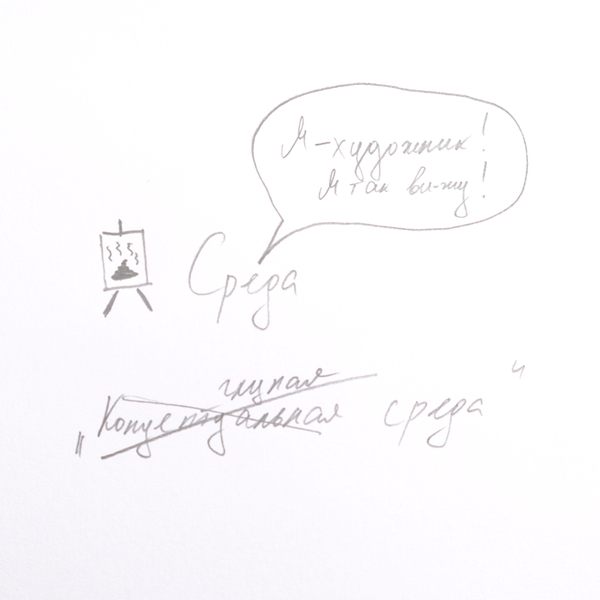 Я-художник!
Я так ви-жу!
Среда
глупая
„Концептуальная среда“